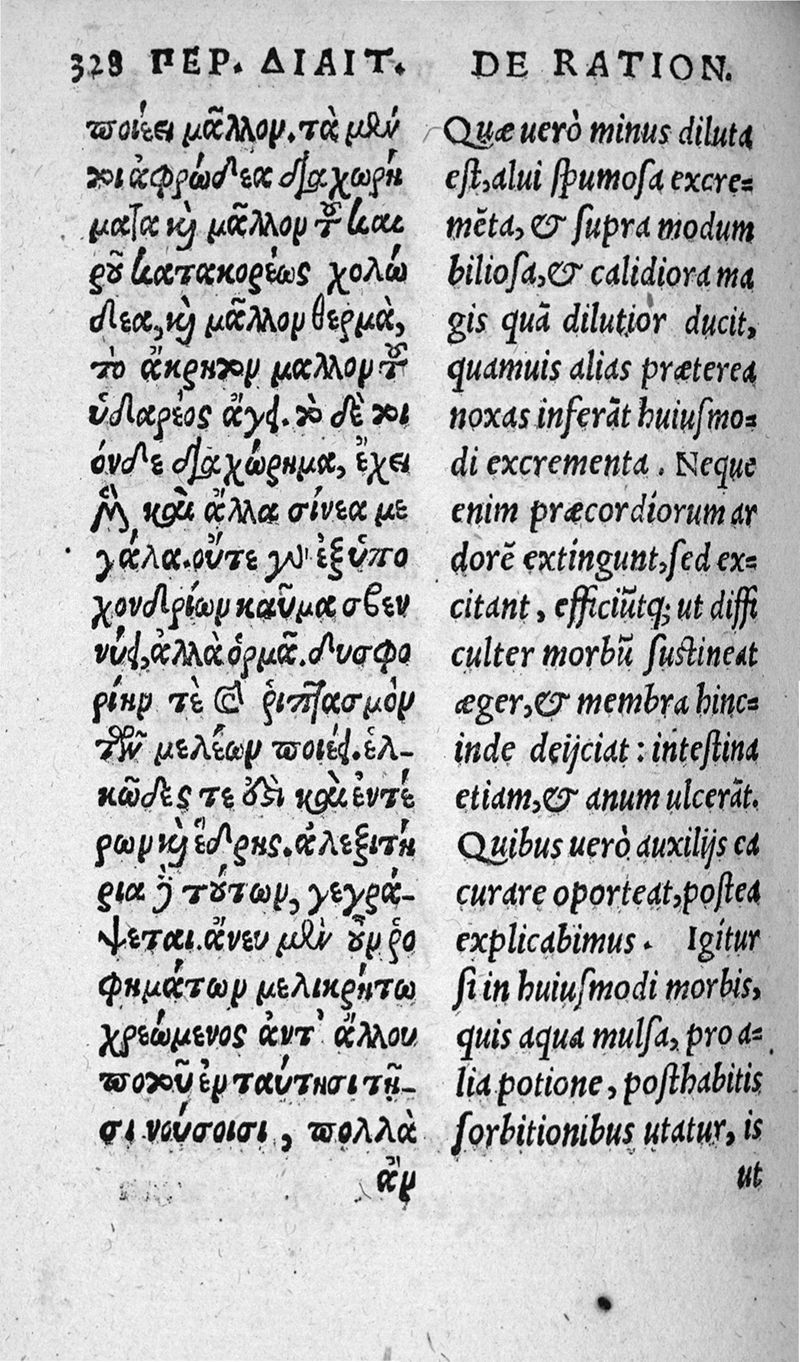 328 ΠΕΡ. ΔΙΑΙΤ.
ποιέει μᾶλλον. τὰ μὲν
τοι ἀφρώδεα διαχωρή
ματα καὶ μᾶλλον τοῦ και
ροῦ κατακορέως χολώ
δεα, καὶ μᾶλλον θερμὰ,
τὸ ἄκρητον μᾶλλον τοῦ
ὑδαρέος ἄγει. τὸ δὲ τοι
όνδε διαχώρημα, ἔχει
μὲν καὶ ἄλλα σίνεα με
γάλα. οὔτε γὰρ ἐξ ὑπο
χονδρίων καῦμα σβεν
νύει, ἀλλὰ ὁρμᾶ. δυσφο
ρίην τὲ καὶ ῥιπτασμὸν
τῶν μελέων ποιέει. ἑλ-
κῶδες τε δὲ καὶ ἐντέ
ρων καὶ ἕδρης. ἀλεξιτή
ρια δὲ τούτων, γεγρά-
ψεται. ἄνευ μὲν οὖν ῥο
φημάτων μελικρήτω
χρεώμενος ἀντ' ἄλλου
ποτοῦ ἐν ταύτησι τῆ-
σι νούσοισι, πολλὰ
ἂν
DE RATION.
Quæ uerò minus diluta
est, alui spumosa excre=
mẽta, & supra modum
biliosa, & calidiora ma
gis quã dilutior ducit,
quamuis alias præterea
noxas inferãt huiusmo=
di excrementa. Neque
enim præcordiorum ar
dorẽ extingunt, sed ex=
citant, efficiũtq; ut diffi
culter morbũ sustineat
æger, & membra hinc=
inde deijciat: intestina
etiam, & anum ulcerãt.
Quibus uerò auxilijs ea
curare oporteat, postea
explicabimus. Igitur
si in huiusmodi morbis,
quis aqua mulsa, pro a=
lia potione, posthabitis
sorbitionibus utatur, is
ut